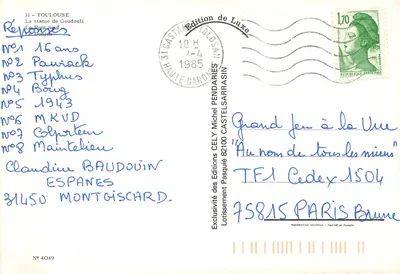 31 - TOULOUSE
La statue de Goudouli
Réponses
N°1 16 ans
N°2 Pawiack
N°3 Typhus
N°4 Bourg
N°5 1943
N°6 MKVD
N°7 Colporteur
N°8 Mantelieu
Claudine BAUDOUIN
ESPANES
31450 MONTGISCARD.
N° 4049
Edition de Luxe
Exclusivité des Editions CELY Michel PENDARIES
Lotissement Pasquié 82100 CASTELSARRASIN
31 CASTANET TOLOSAN
18 H
2-4
1985
HAUTE-GARONNE
1,70
Grand Jeu à la Une
"Au nom de tous les miens"
TF1 Cedex 1504
75815 PARIS Brune